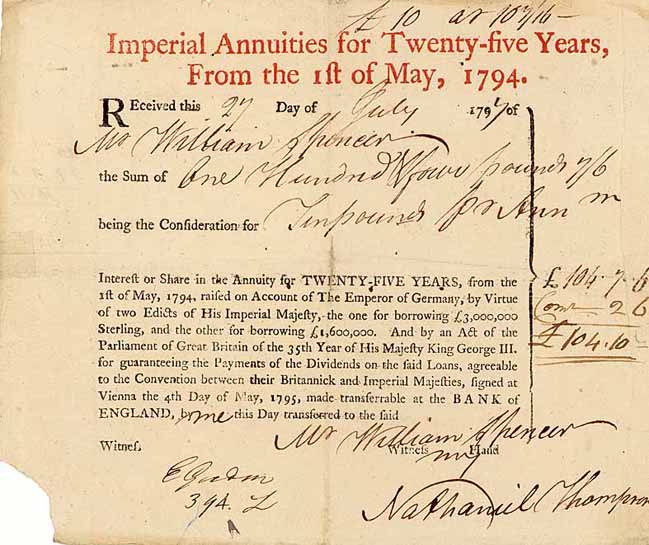 £ 10 at 10 7/16 -
Imperial Annuities for Twenty-five Years,
From the 1st of May, 1794.
Received this 27 Day of July 179 of
Mr William Spencer
the Sum of One Hundred & four pounds 7/6
being the Consideration for Ten pounds pr Ann m
Interest or Share in the Annuity for TWENTY-FIVE YEARS, from the
1st of May, 1794, raised on Account of The Emperor of Germany, by Virtue
of two Edicts of His Imperial Majesty, the one for borrowing £3,000,000
Sterling, and the other for borrowing £1,600,000. And by an Act of the
Parliament of Great Britain of the 35th Year of His Majesty King George III.
for guaranteeing the Payments of the Dividends on the said Loans, agreeable
to the Convention between their Britannick and Imperial Majesties, signed at
Vienna the 4th Day of May, 1795, made transferrable at the BANK of
ENGLAND, by me this Day transferred to the said
£ 104.7.6
Com 2 6
£ 104.10
Mr William Spencer
Witness. Witness my Hand
394. L
Nathaniel Thompson